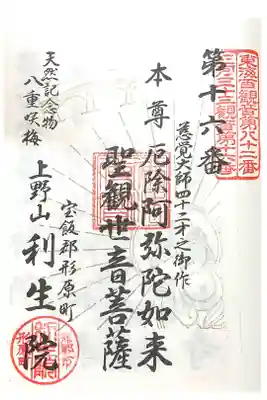 東海百観音第八十二番
三河三十三観音第十六番
第十六番
慈覚大師四十二才之御作
本尊 厄除阿弥陀如来
聖観世音菩薩
宝飯郡形原町
上野山 利生院
天然記念物
八重咲梅